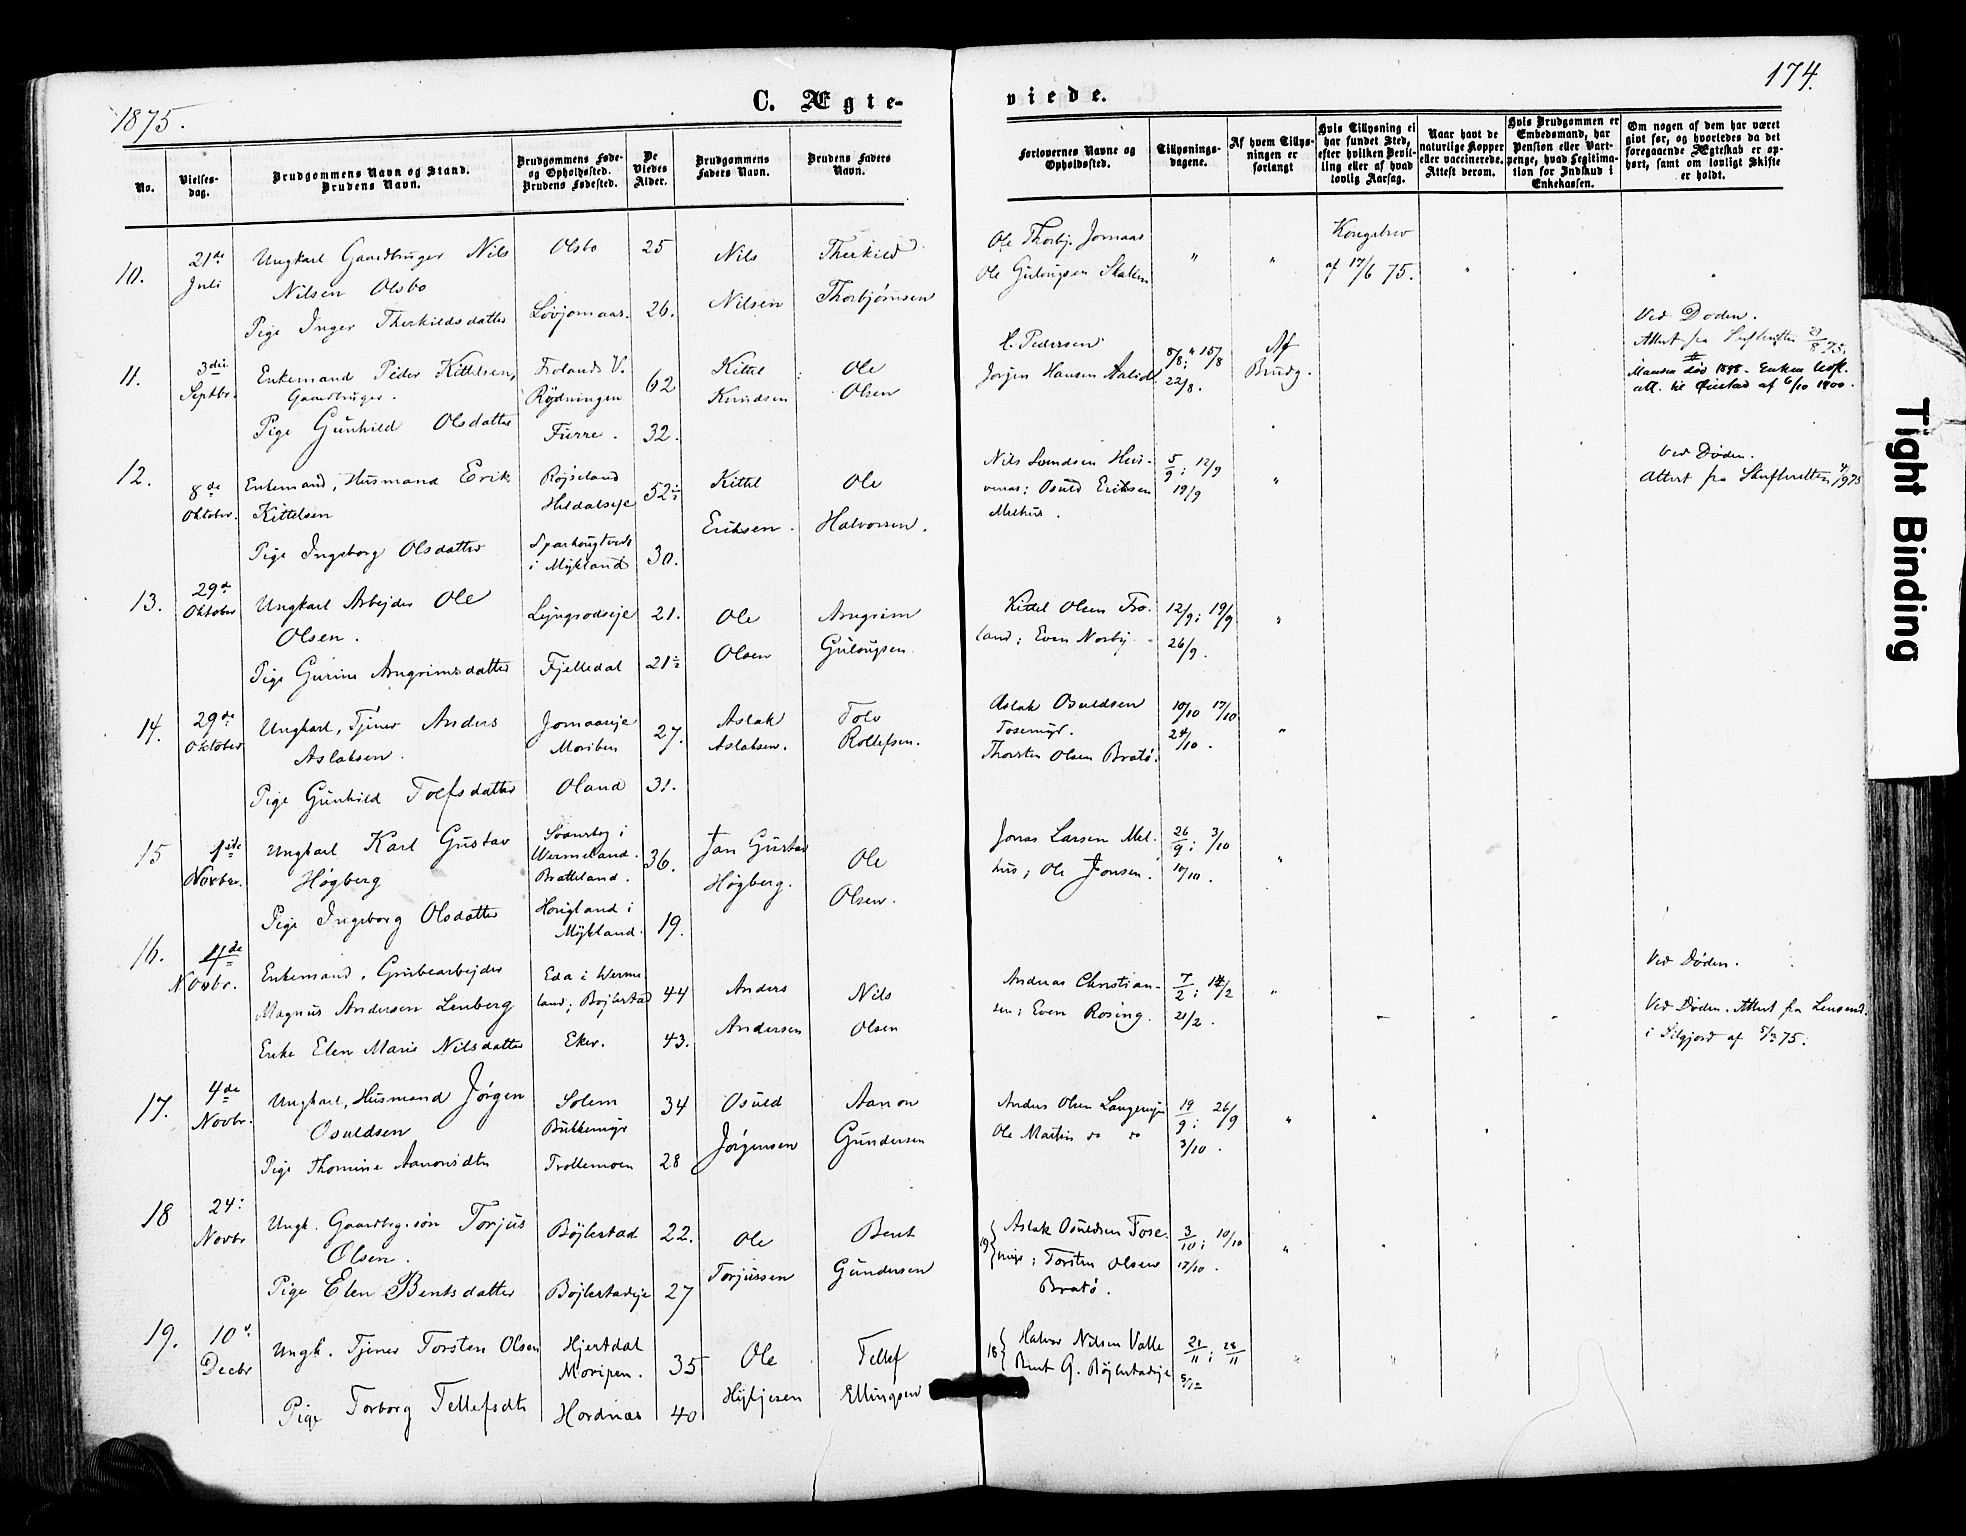 1875.
C. Ægte-
viede.
174.
No.
Vielses-
dag.
Brudgommens Navn og Stand.
Brudens Navn.
Brudgommens Føde-
og Opholdssted.
Brudens Fødested.
De
Viedes
Alder.
Brudgommens
Faders Navn.
Brudens Faders
Navn.
Forlovernes Navne og
Opholdssted.
Tillysnings-
dagene.
Af hvem Tillys-
ningen er
forlangt
Hvis Tillysning ei
har fundet Sted,
efter hvilken Bevil-
ling eller af hvad
lovlig Aarsag.
Naar havt de
naturlige Kopper
eller vaccinerede.
Attest derom.
Hvis Brudgommen er
Embedsmand, har
Pension eller Vart-
penge, hvad Legitima-
tion for Indskud i
Enkekassen.
Om nogen af dem har været
gift før, og hvorledes da det
foregaaende Ægteskab er op-
hørt, samt om lovligt Skifte
er holdt.
10.
21de
Juli
Ungkarl Gaardbruger Nils
Nilsen Olsbo
Pige Inger Therkildsdatter
Olsbo
Løvjomaas.
25
26.
Nils
Nilsen
Therkild
Thorbjørnsen
Ole Thorbj. Jomaas
Ole Gulougsen Skallen
"
"
Kongebrev
af 17/6 75.
11.
3die
Septbr.
Enkemand Peder Kittelsen,
Gaardbruger.
Pige Gunhild Olsdatter
Frolands V.
Rødningen
Furre.
62
32.
Kittel
Knudsen
Ole
Olsen
Pedersen
Jørgen Hansen
8/8; 15/8
22/8.
Af
Brudg.
Ved Døden.
Attest fra Skifteretten
Manden død 1898. Enken
att. til Øiestad af 6/10 1900.
12.
8de
Oktober.
Enkemand, Husmand Erik
Kittelsen
Pige Ingeborg Olsdatter
Røjseland
Heldalseje
i Mykland
52½
30.
Kittel
Eriksen.
Ole
Halvorsen.
Nils Svendsen Hus-
Osuld Eriksen
Melhus.
5/9; 12/9
19/9
"
Ved Døden.
Attest fra Skifteretten
13.
29de
Oktober
Ungkarl Arbejder Ole
Olsen.
Pige Gurine Arngrimsdatter
Fjelledal
21.
21½
Ole
Olsen
Arngrim
Gulougsen.
Kittel Olsen Fro-
land; Even Norby.
12/9; 19/9
26/9.
"
14.
29de
Oktober
Ungkarl, Tjener Anders
Aslaksen.
Pige Gunhild Tolfsdatter
Jomaaseje
Moriben
Oland
27.
31.
Aslak
Aslaksen.
Tolv
Rollefsen.
Aslak Osuldsen
Fosemyr.
Thorsten Olsen Bratø.
10/10 17/10
24/10.
"
15
1ste
Novbr.
Ungkarl Karl Gustav
Høgberg
Pige Ingeborg Olsdatter
Svanskog i
Wermeland.
Bratteland.
Hougland i
Mykland.
36.
19.
Jan Gustav
Høgberg.
Ole
Olsen.
Jonas Larsen Mel-
hus; Ole Jonsen.
26/9; 3/10
10/10.
"
16.
4de
Novbr.
Enkemand, Grubearbejder
Magnus Andersen Lenberg
Enke Elen Marie Nilsdatter
Eda i Werme-
land; Bøjlestad
Eker.
44
43.
Anders
Andersen
Nils
Olsen
Andreas Christian-
sen; Even Rosing.
7/2; 14/2
21/2.
"
Ved Døden.
Ved Døden. Attest fra Lensmd.
i Silgjord af 5/3 75.
17.
4de
Novbr.
Ungkarl, Husmand Jørgen
Osuldsen
Pige Thomine Aanonsdtr
Solem
Bukkemyr
Trollemoen
34
28
Osuld
Jørgensen
Aanon
Gundersen
Anders Olsen Langemyr
Ole Martin do do
19/9; 26/9
3/10.
"
18
24:
Novbr
Ungk. Gaardbrg.søn Torjus
Olsen.
Pige Elen Bentsdatter
Bøjlestad
Bøjlestadeje
22.
27
Ole
Torjussen
Bent
Gundersen
19 { Aslak Osuldsen Fose-
myr; Torsten Olsen
Bratø.
3/10; 10/10
17/10.
"
19.
10de
Decbr
Ungk. Tjener Torsten Olsen
Pige Torborg Tellefsdtr
Hjertdal
Moripen.
Hordnæs
35
40
Ole
Tellef
Ellingsen
18 { Halvor Nilsen Valle
Bent G. Bøjlestadeje
21/11; 28/11
5/12
"
Tight Binding